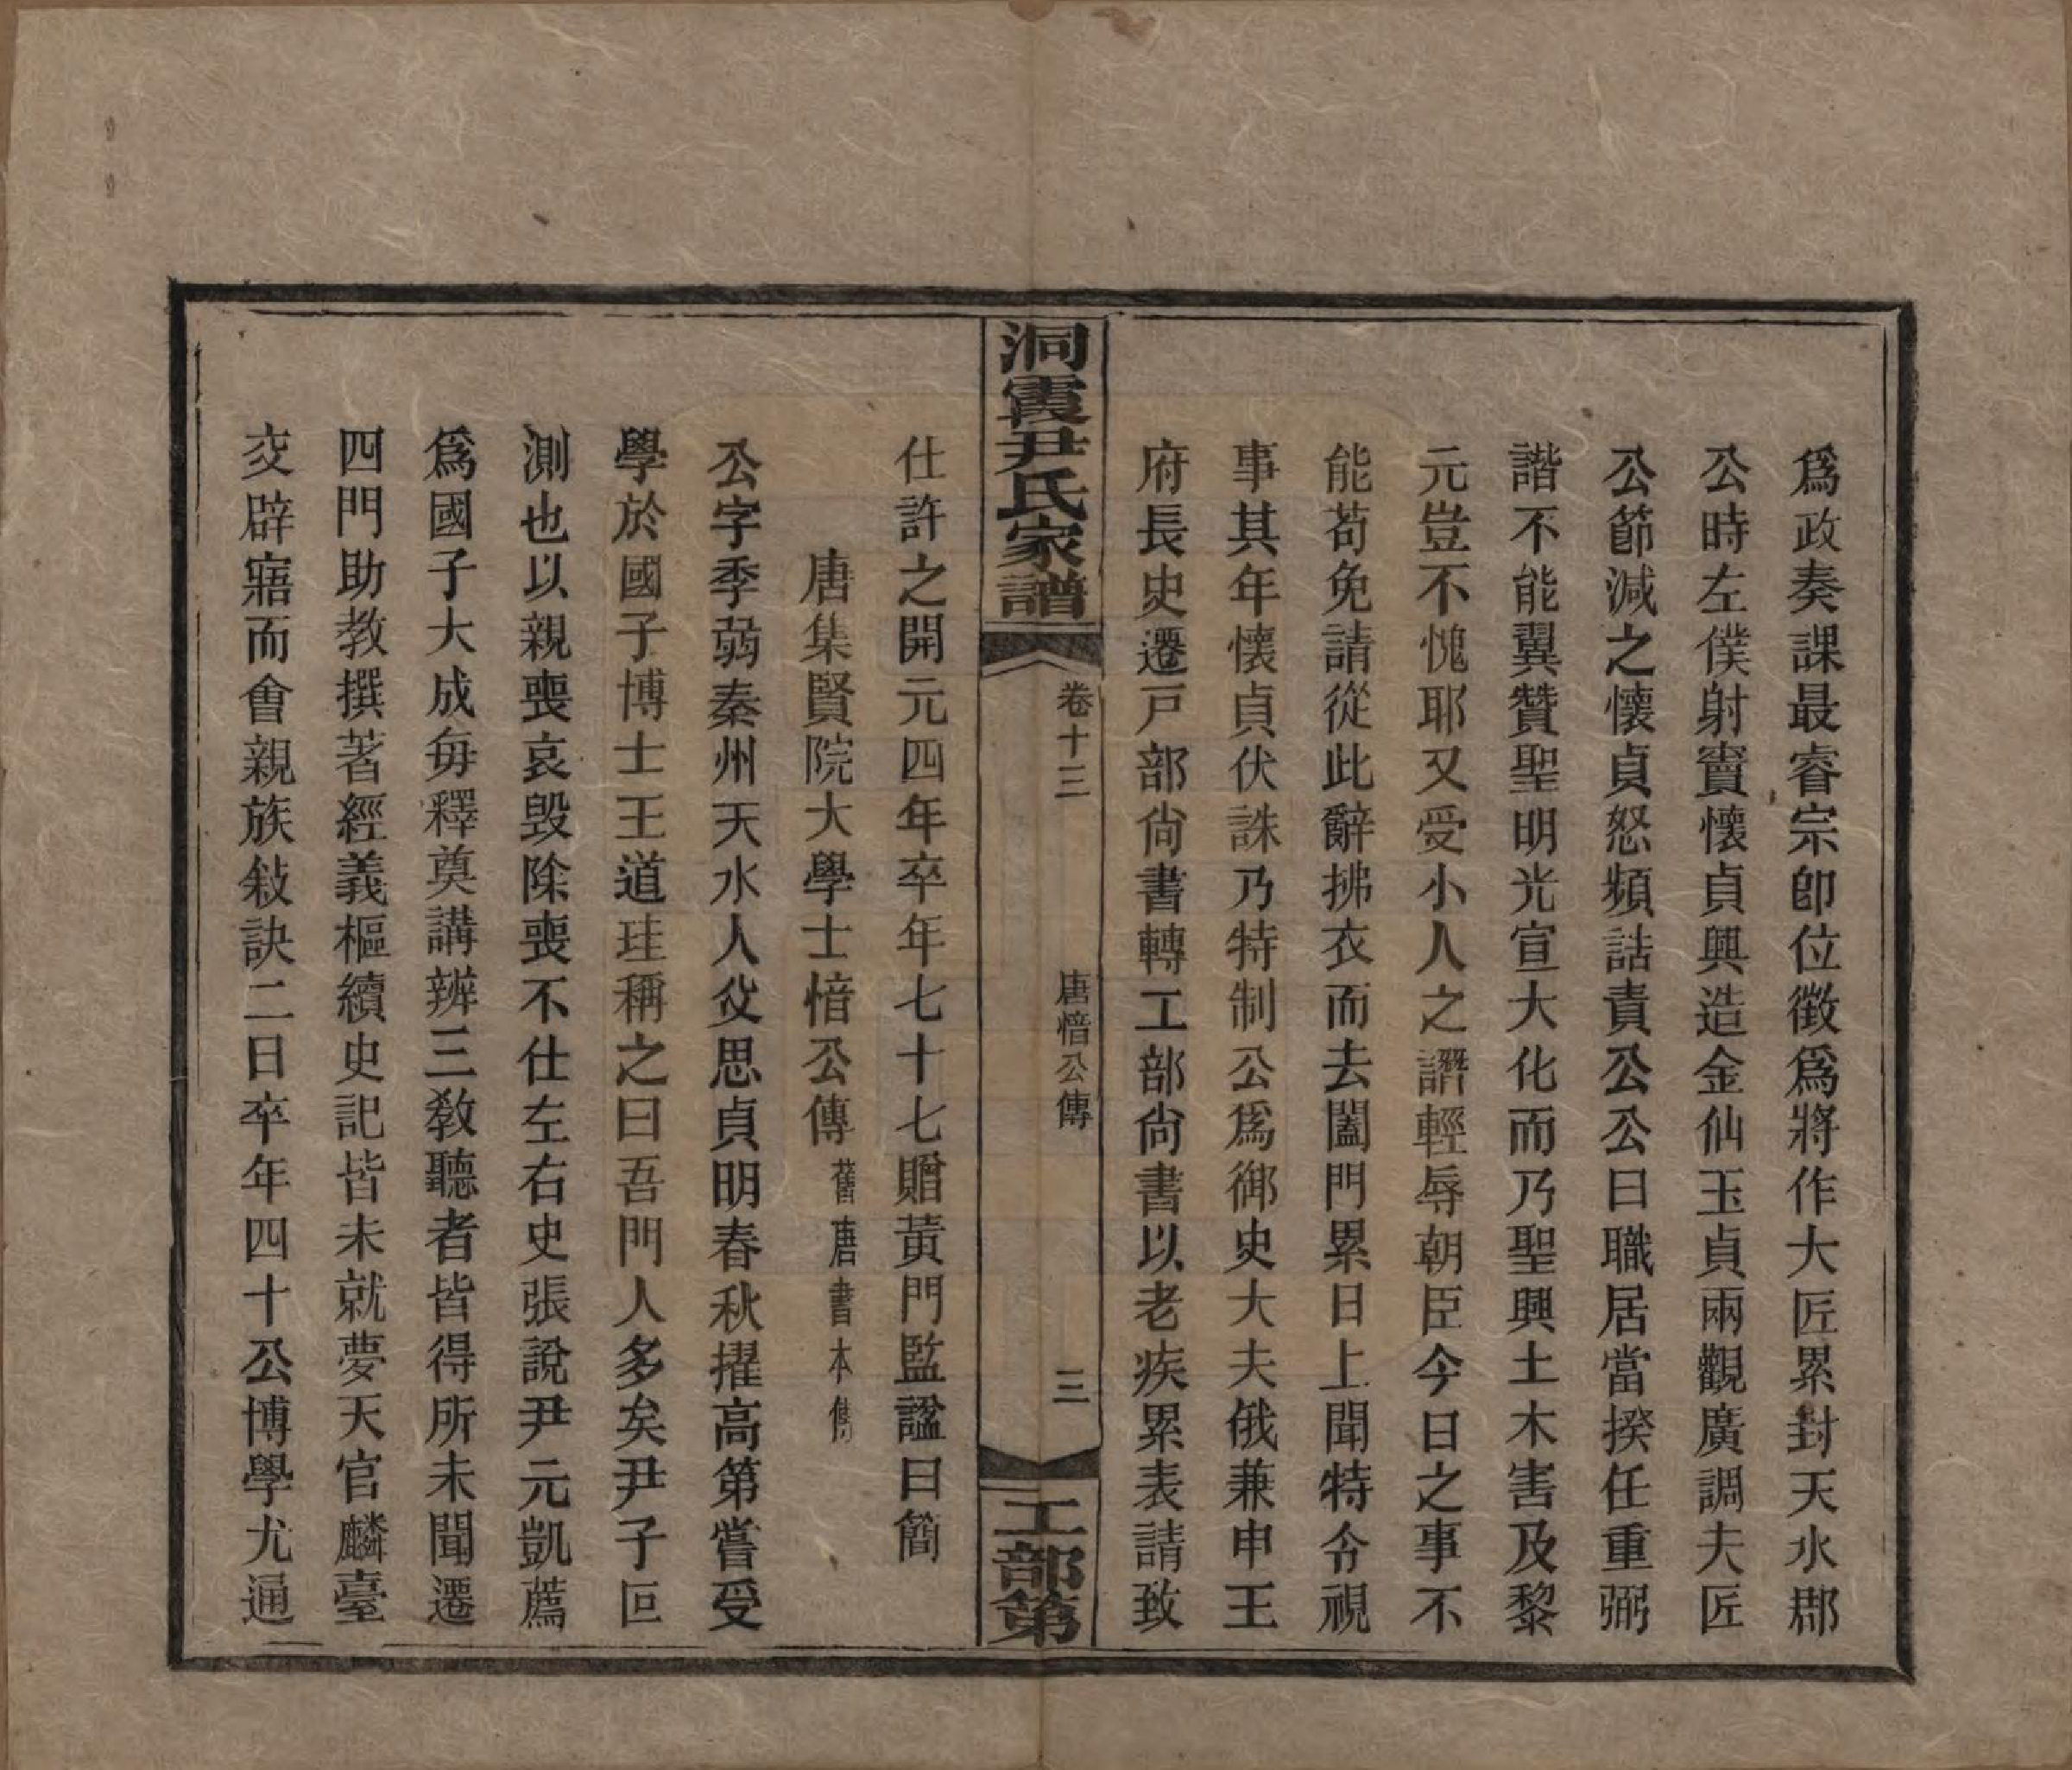 爲政奏課最睿宗卽位徵爲將作大匠累封天水郡
公時左僕射竇懷貞興造金仙玉貞兩觀廣調夫匠
公節減之懷貞怒頻詰責公公曰職居當揆任重弼
諧不能翼贊聖明光宣大化而乃聖興土木害及黎
元豈不愧耶又受小人之譖輕辱朝臣今日之事不
能苟免請從此辭拂衣而去闔門累日上聞特令視
事其年懷貞伏誅乃特制公爲御史大夫俄兼申王
府長史遷戸部尙書轉工部尙書以老疾累表請致
洞霞尹氏家譜
卷十三
唐愔公傳
三
工部第
仕許之開元四年卒年七十七贈黃門監諡曰簡
唐集賢院大學士愔公傳 舊唐書本傳
公字季弱秦州天水人父思貞明春秋擢高第嘗受
學於國子博士王道珪稱之曰吾門人多矣尹子叵
測也以親喪哀毀除喪不仕左右史張說尹元凱薦
爲國子大成每釋奠講辨三敎聽者皆得所未聞遷
四門助教撰著經義樞續史記皆未就夢天官麟臺
交辟寤而會親族敍訣二日卒年四十公博學尤通